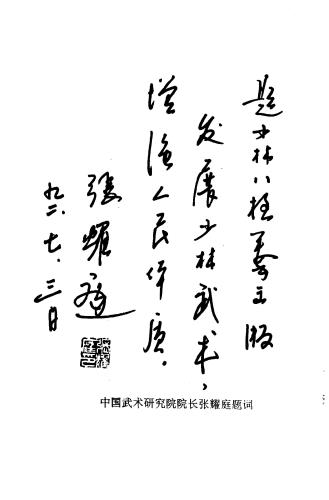 题少林八极拳出版
发展少林武术，
增强人民体质。
张耀庭
九二.七.三日
中国武术研究院院长张耀庭题词